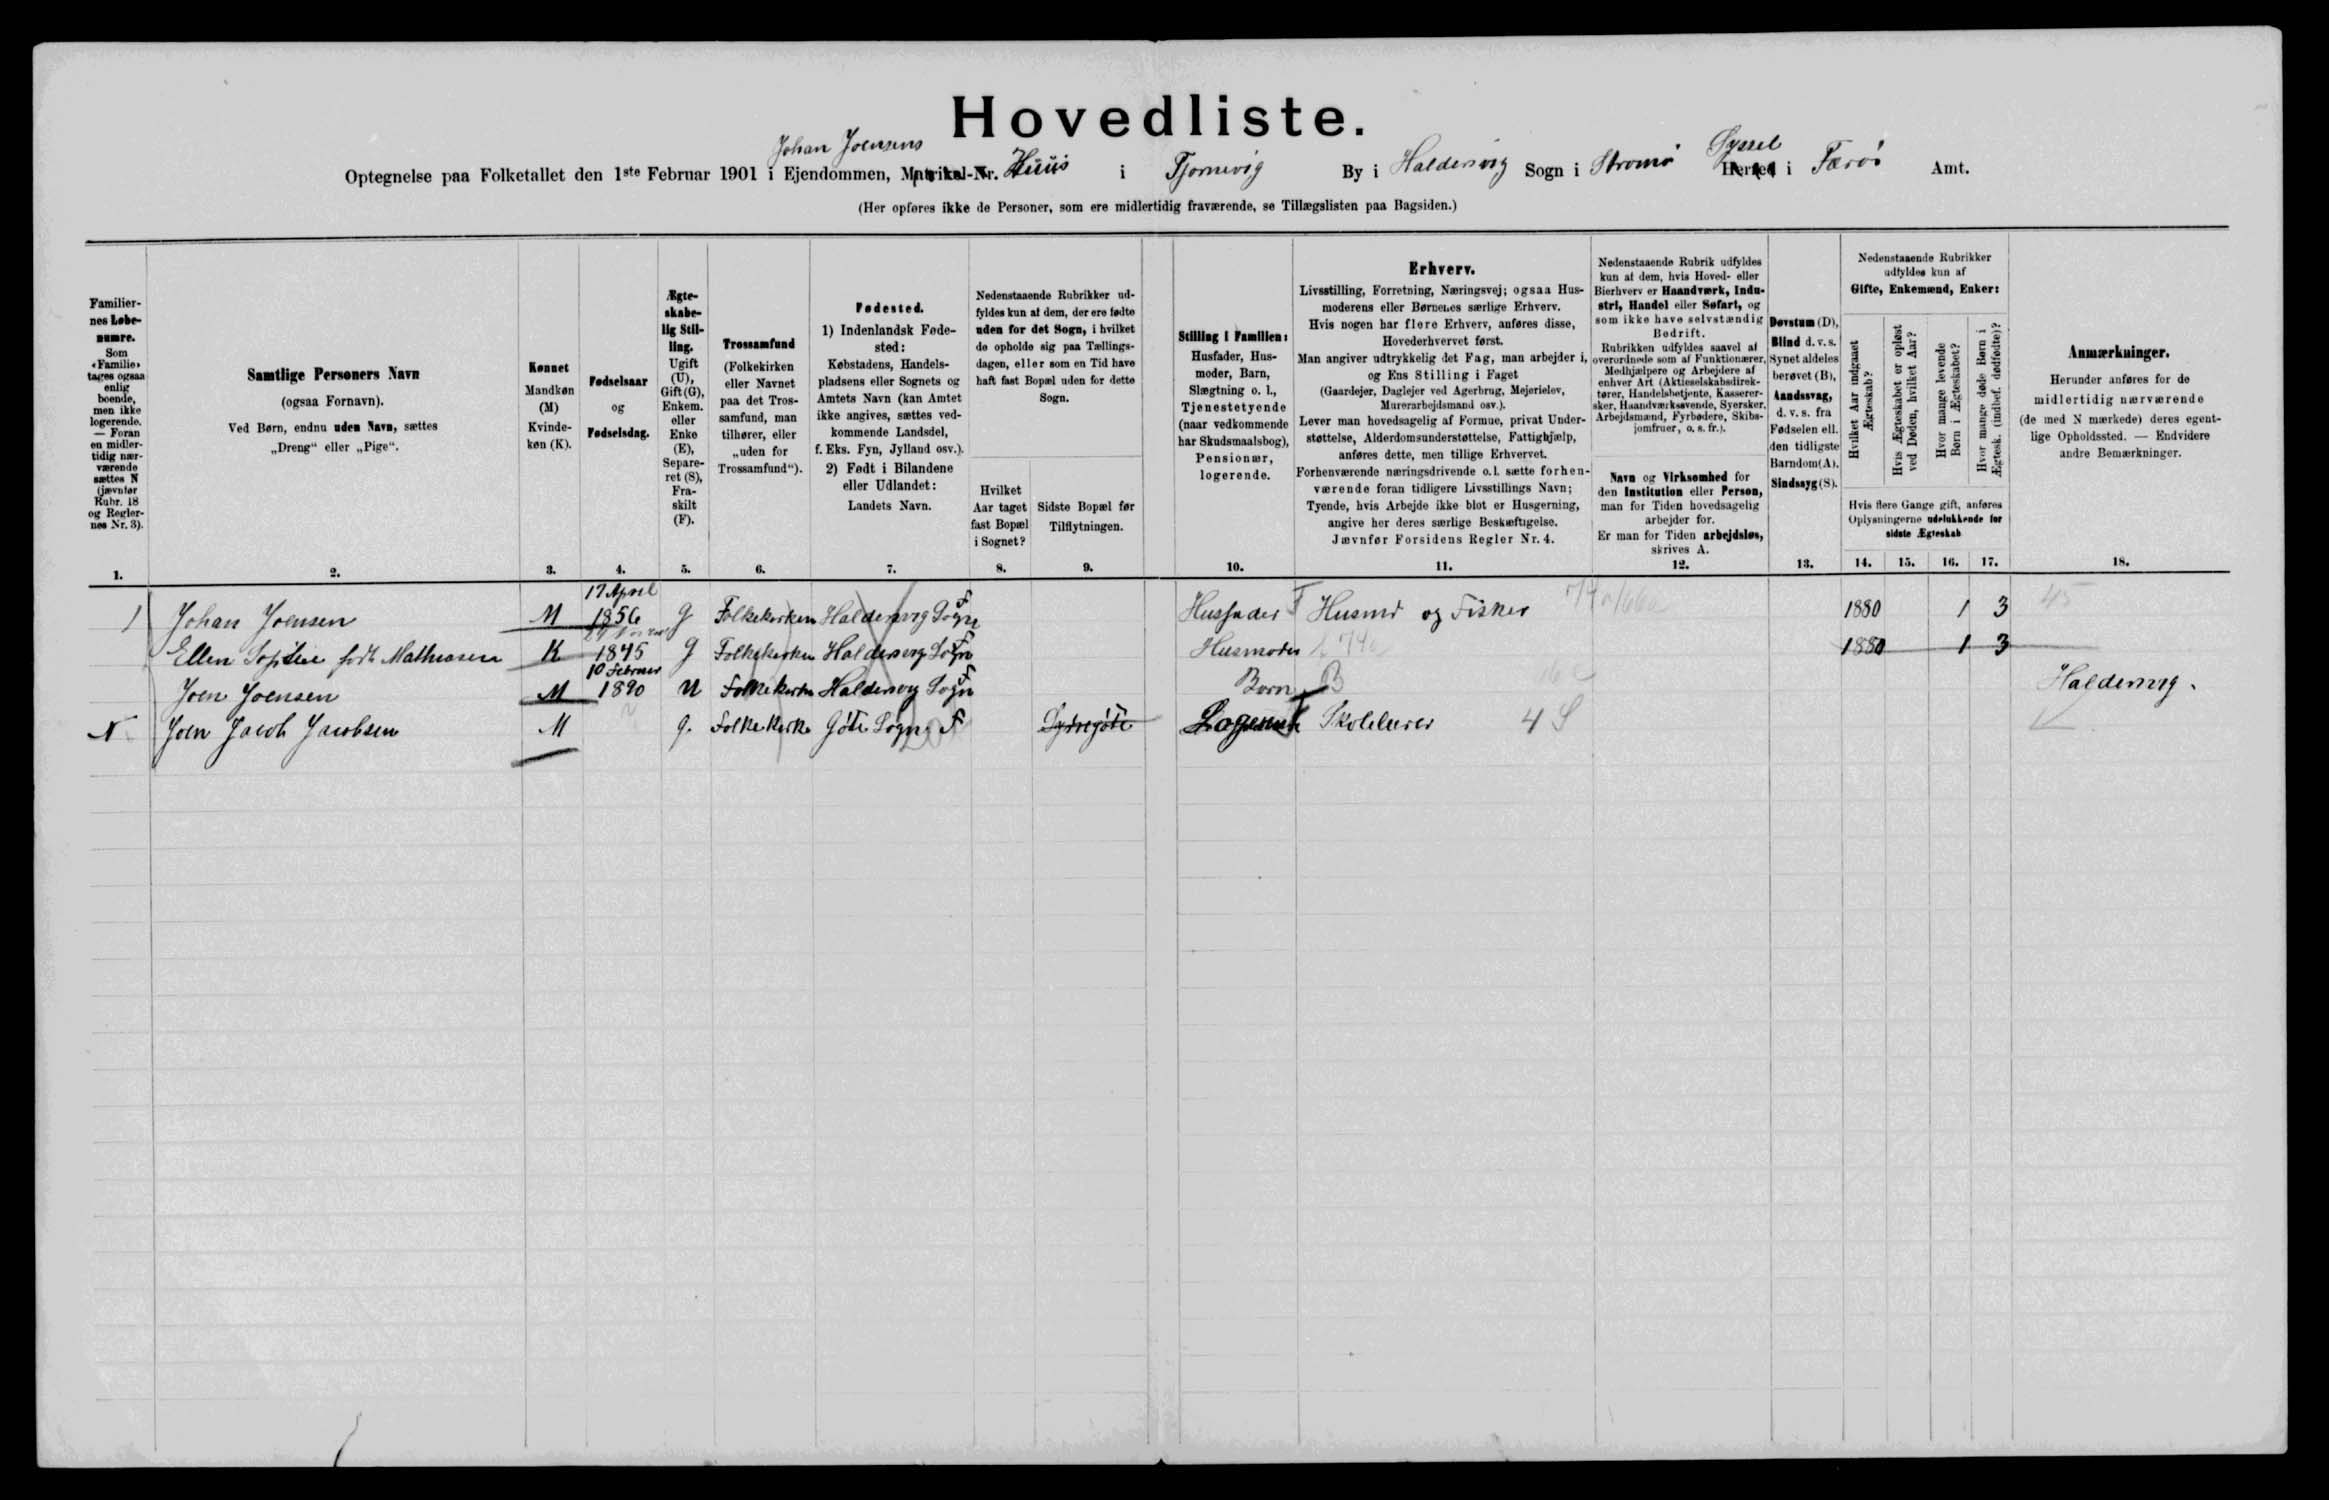 Hovedliste.
Johan Joensens
Optegnelse paa Folketallet den 1ste Februar 1901 i Ejendommen, Matrikel-Nr. Huus i Tjornevig By i Haldersvig Sogn i Stromø Syssel Herred i Færø Amt.
(Her opføres ikke de Personer, som ere midlertidig fraværende, se Tillægslisten paa Bagsiden.)
Familiernes Løbenumre.
Som «Familie» tages ogsaa enlig boende, men ikke logerende. — Foran en midlertidig nærværende sættes N (jævnfør Rubr. 18 og Reglernes Nr. 3).
1.
Samtlige Personers Navn
(ogsaa Fornavn).
Ved Børn, endnu uden Navn, sættes
„Dreng“ eller „Pige“.
2.
Kønnet
Mandkøn (M)
Kvindekøn (K).
3.
Fødselsaar
og
Fødselsdag.
4.
Ægteskabelig Stilling.
Ugift (U), Gift (G), Enkem. eller Enke (E), Separeret (S), Fraskilt (F).
5.
Trossamfund
(Folkekirken eller Navnet paa det Trossamfund, man tilhører, eller „uden for Trossamfund“).
6.
Fødested.
1) Indenlandsk Fødested:
Købstadens, Handelspladsens eller Sognets og Amtets Navn (kan Amtet ikke angives, sættes vedkommende Landsdel, f. Eks. Fyn, Jylland osv.).
2) Født i Bilandene eller Udlandet:
Landets Navn.
7.
Nedenstaaende Rubrikker udfyldes kun af dem, der ere fødte uden for det Sogn, i hvilket de opholde sig paa Tællingsdagen, eller som en Tid have haft fast Bopæl uden for dette Sogn.
Hvilket Aar taget fast Bopæl i Sognet?
8.
Sidste Bopæl før Tilflytningen.
9.
Stilling i Familien:
Husfader, Husmoder, Barn, Slægtning o. l., Tjenestetyende (naar vedkommende har Skudsmaalsbog), Pensionær, logerende.
10.
Erhverv.
Livsstilling, Forretning, Næringsvej; ogsaa Husmoderens eller Børnenes særlige Erhverv.
Hvis nogen har flere Erhverv, anføres disse, Hovederhvervet først.
Man angiver udtrykkelig det Fag, man arbejder i, og Ens Stilling i Faget
(Gaardejer, Daglejer ved Agerbrug, Mejerielev, Murerarbejdsmand osv.).
Lever man hovedsagelig af Formue, privat Understøttelse, Alderdomsunderstøttelse, Fattighjælp, anføres dette, men tillige Erhvervet.
Forhenværende næringsdrivende o. l. sætte forhenværende foran tidligere Livsstillings Navn;
Tyende, hvis Arbejde ikke blot er Husgerning, angive her deres særlige Beskæftigelse.
Jævnfør Forsidens Regler Nr. 4.
11.
Nedenstaaende Rubrik udfyldes kun af dem, hvis Hoved- eller Bierhverv er Haandværk, Industri, Handel eller Søfart, og som ikke have selvstændig Bedrift.
Rubrikken udfyldes saavel af overordnede som af Funktionærer, Medhjælpere og Arbejdere af enhver Art (Aktieselskabsdirektører, Handelsbetjente, Kasserersker, Haandværkssvende, Syersker, Arbejdsmænd, Fyrbødere, Skibsjomfruer, o. s. fr.).
Navn og Virksomhed for den Institution eller Person, man for Tiden hovedsagelig arbejder for.
Er man for Tiden arbejdsløs, skrives A.
12.
Døvstum (D), Blind d. v. s. Synet aldeles berøvet (B), Aandssvag, d. v. s. fra Fødselen ell. den tidligste Barndom (A). Sindssyg (S).
13.
Nedenstaaende Rubrikker udfyldes kun af
Gifte, Enkemænd, Enker:
Hvilket Aar indgaaet Ægteskab?
Hvis Ægteskabet er opløst ved Døden, hvilket Aar?
Hvor mange levende Børn i Ægteskabet?
Hvor mange døde Børn i Ægtesk. (indbef. dødfødte)?
Hvis flere Gange gift, anføres Oplysningerne udelukkende for sidste Ægteskab
14. 15. 16. 17.
Anmærkninger.
Herunder anføres for de midlertidig nærværende (de med N mærkede) deres egentlige Opholdssted. — Endvidere andre Bemærkninger.
18.
1 Johan Joensen M 17 April 1856 G Folkekirken Haldersvig Sogn F Husfader Husmd og Fisker 1880 1 3 45
Ellen Sophie født Mathiasen K 1845 G Folkekirken Haldersvig Sogn F Husmoder 1880 1 3
Joen Joensen M 10 Februar 1890 U Folkekirken Haldersvig Sogn F Barn B
N Joen Jacob Jacobsen M g. Folkekirke Gøte Sogn F Sydregøte Logerende Skolelærer 4 S Haldersvig.